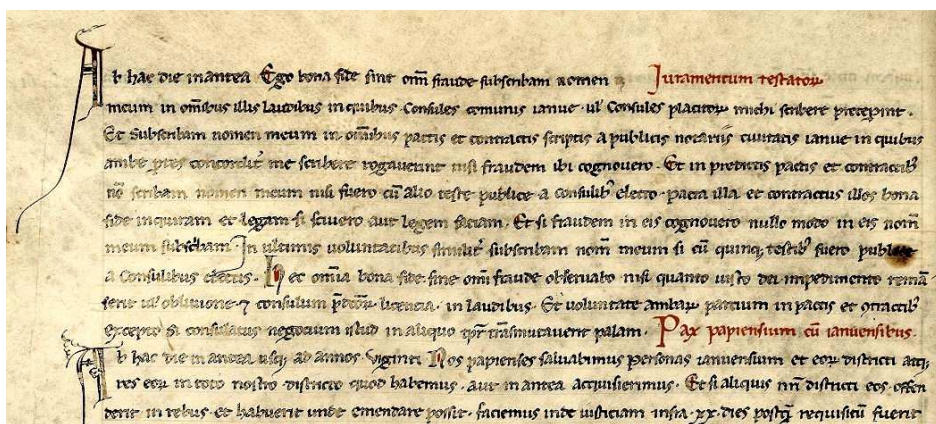 Ab hac die in antea Ego bona fide sine om̄i fraude subscribam nomen Iuramentum testatoꝝ
meum in om̄ibus illis laudibus in quibus Consules comunis ianue ul᷑ Consules placitoꝝ michi scribere preceperint.
Et Subscribam nomen meum in om̄ibus pactis et contractis scriptis a publicis notariis ciuitatis ianue in quibus
ambe ꝑtes concordit᷑ me scribere rogauerint nisi fraudem ibi cognouero. Et in predictis pactis et contractib᷒
nō scribam nomen meum nisi fuero cū alio teste publice a Consulib᷒ electo. pacta illa et contractus illos bona
fide inquiram et legam si sciuero aut legere faciam. Et si fraudem in eis cognouero nullo modo in eis nom̄
meum subscribam. In ultimis uoluntatibus similit᷑ subscribam nom̄ meum si cū quinq; testib᷒ fuero publice
a Consulibus electus. Hec et omīa bona fide sine om̄i fraude obseruabo nisi quanto iusto dei impedimento remā
serit ul᷑ obliuione ⁊ consulum licencia in laudibus. Et uoluntate ambaꝝ partium in pactis et ꝯtractib᷒
excepto si consulatus negocium istud in aliquo tꝑr trāsmutauerit palam. Pax papiensium cū ianuensibus.
Ab hac die in antea usq; ad annos uiginti Nos papienses saluabimus personas ianuensium et eoꝝ districti
res eoꝝ in toto nostro districto quod habemus aut in antea acquisierimus. Et si aliquis nr̄i districti eos offen
derit in rebus et habuerit unde emendare possit. faciemus inde iusticiam infra .xx. dies postq̄ requisitū fuerit